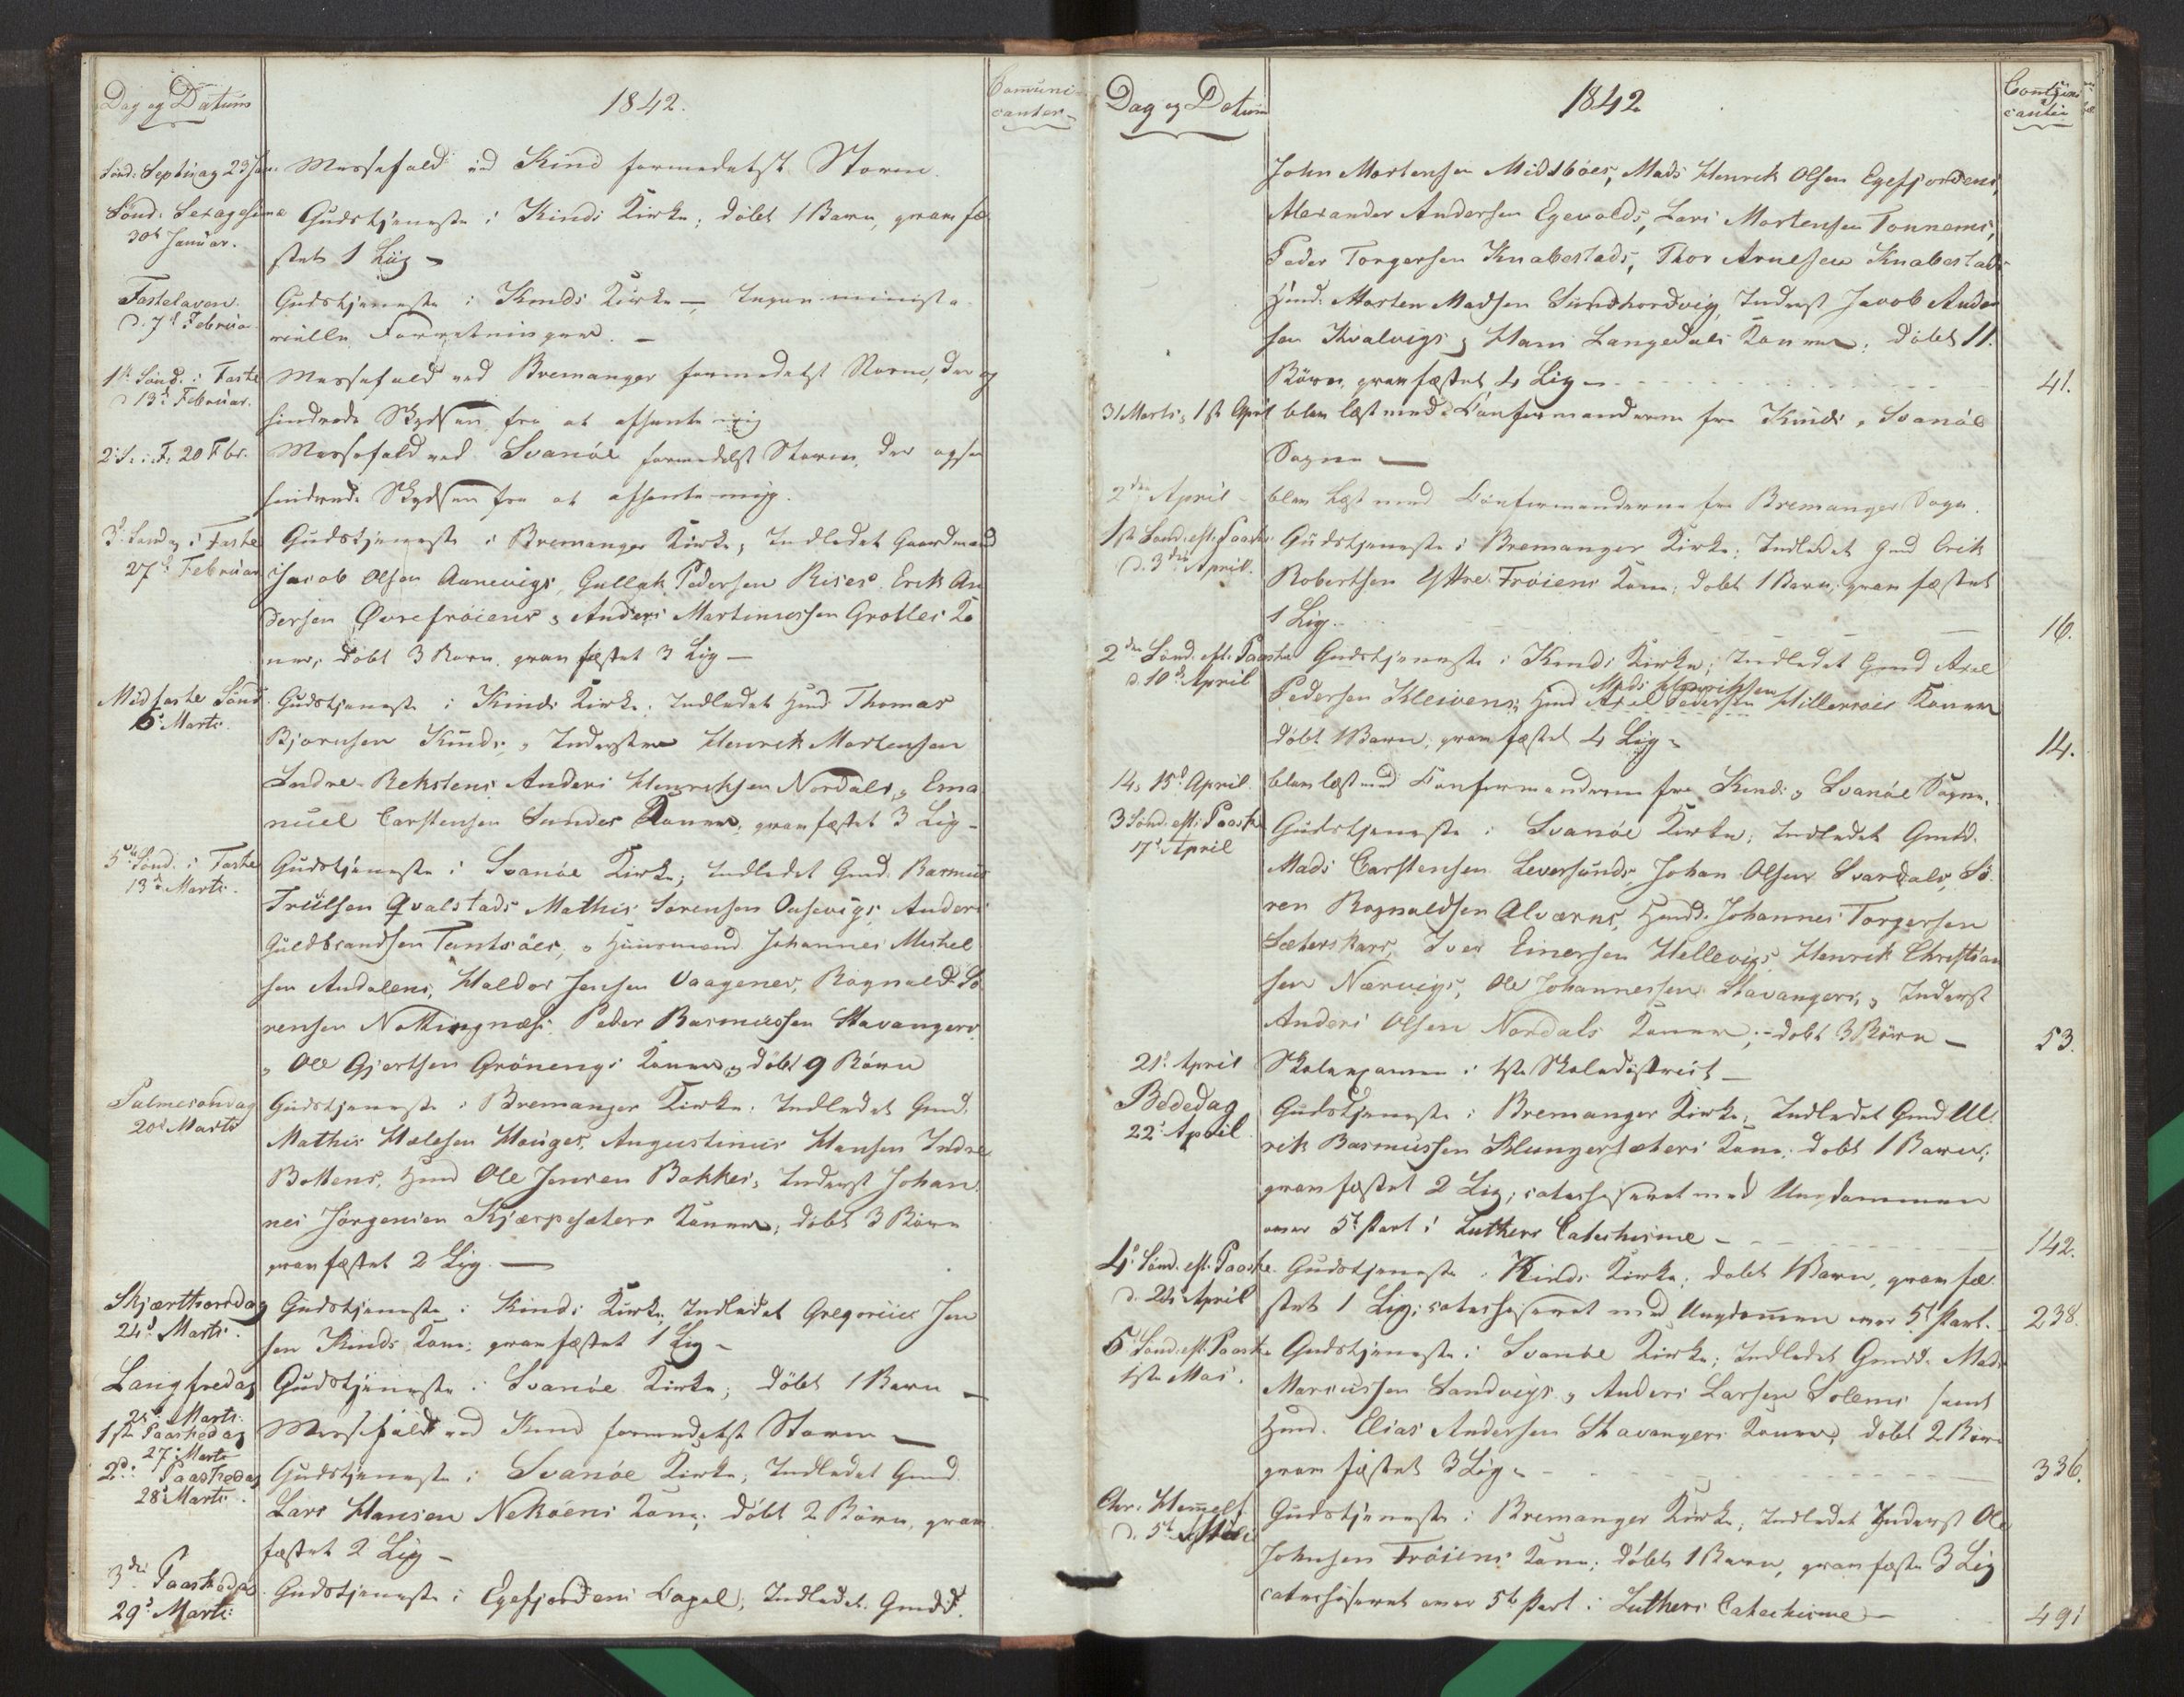 Dag og Datum
1842.
Comuni-
canter
Sönd. Septuag 23 Jan.
Messefald ved Kind formedelst Storm.
Sönd. Sexagesima
30t Januar.
Gudstjeneste i Kinds Kirke; döbt 1 Barn, graffæ
stet 1 Liig
Fastelavn
d. 7d Februar
Gudstjeneste i Kinds Kirke. Ingen ministe
rielle Forretninger.
1st Sönd. i Faste
d 13d Februar.
Messefald ved Bremanger formedelst Storm, der og
hindrede Skydsen fra at afhente mig
2. S. i F. 20 Fbr.
Messefald ved Svanöe formedelst Storm, der ogsaa
hindrede Skydsen fra at afhente mig.
3d Søndag i Faste
27d Februar
Gudstjeneste i Bremanger Kirke; Indledet Gaardmænd
Jacob Olsen Aanevigs, Gullak Pedersen Rises, Erik An
dersen Øvrefröiens, Anders Martinussen Grotles Ko
ner, döbt 3 Børn, graffæstet 3 Lig
Midfaste Sönd.
6d Marts.
Gudstjeneste i Kinds Kirke. Indledet Hmd Thomas
Bjørnsen Kinds, Inderstene Henrik Mortensen
Indre-Rekstens, Anders Henriksen Nordals, Ema
nuel Carstensen Sundes Koner; graffæstet 3 Lig
5d Sönd. i Faste
13d Marts.
Gudstjeneste i Svanöe Kirke; Indledet Gmd. Rasmus
Trulsen Qvalstads Mathis Sørensen Ousevigs, Anders
Guldbrandsen Tantsöes, Huusmænd Johannes Mickel
sen Andalens, Haldor Jensen Vaagenes, Ragnald Sö
rensen Nottingnæs, Peder Rasmussen Stavangers
Ole Gjertsen Grönengs Koner, döbt 9 Børn
Palmesöndag
20d Marts
Gudstjeneste i Bremanger Kirke. Indledet Gmd.
Mathis Halsen Hauges, Augustinus Hansen Indre
Bottens, Hmd Ole Jensen Bakkes, Inderst Johan
nes Jörgensen Kjærpesæters Koner; döbt 3 Børn
graffæstet 2 Lig.
Skjærthorsdag
24d Marts.
Gudstjeneste i Kinds Kirke, Indledet Gregorius Jen
sen Kinds Kone; graffæstet 1 Lig
Langfredag
25d Marts.
Gudstjeneste i Svanöe Kirke; döbt 1 Barn
1st Paaskedag
27 Marts
Messefald ved Kind formedelst Storm
2d Paaskedag
28d Marts.
Gudstjeneste i Svanöe Kirke; Indledet Gmd.
Lars Hansen Nekøens Kone; döbt 2 Børn, graf
fæstet 2 Lig
3die Paaskedag
29d Marts.
Gudstjeneste i Egefjordens Capel; Indledet Gmdd.
Dag og Datum
1842
Communi
canter
John Mortensen Midtböes, Mads Henrik Olsen Egefjordens,
Alexander Andersen Egevolds, Lars Mortensen Tonnems,
Peder Torgersen Knabestads, Thor Arnesen Knabestads
Hmd. Morten Madsen Sundhordvig, Inderst Jacob Ander
sen Kvalvigs, Hans Langedals Koner; döbt 11.
Børn, graffæstet 4 Lig
41.
31 Marts, 1st April
blev læst med Confirmanderne fra Kinds, Svanöe
Sogne
2den April
blev læst med Confirmanderne fra Bremanger Sogn.
1st Sönd. eft. Paaske
d. 3die April.
Gudstjeneste i Bremanger Kirke; Indledet Gmd Erik
Robertsen Yttre Fröiens Kone; döbt 1 Barn; graffæstet
1 Lig.
16.
2den Sönd. eft. Paaske
d. 10d April
Gudstjeneste i Kinds Kirke; Indledet Gmd Axel
Pedersen Kleivens, Hmd Mads Henriksen Axel Pedersen Hillersöes Koner
döbt 1 Barn, graffæstet 4 Lig
14.
14, 15d April
blev læst med Confirmanderne fra Kinds, Svanöe Sogne.
3 Sönd. eft. Paaske
17d April
Gudstjeneste i Svanöe Kirke; Indledet Gmdd.
Mads Carstensen Leversunds, Johan Olsen Svardals, Sö
ren Ragnaldsen Alværns, Hmdd. Johannes Torgersen
Sæterskars, Iver Einersen Hellevigs, Henrik Christian
sen Nærvigs, Ole Johannessen Stavangers, Inderst
Anders Olsen Nordals Koner; döbt 3 Børn
53.
21d April
Skoleexamen i 1ste Skoledistrict
Bededag
22d April
Gudstjeneste i Bremanger Kirke; Indledet Gmd Ul
rik Rasmussen Klungersæters Kone; döbt 1 Barn;
graffæstet 2 Lig; catechiseret med Ungdommen
over 5t Part i Luthers Catechisme
142.
4d Sönd. eft. Paaske
d. 24d April
Gudstjeneste i Kinds Kirke; döbt 1 Barn, graffæ
stet 1 Lig; catechiseret med Ungdommen over 5t Part.
238.
5 Sönd. eft. Paaske
1ste Mai.
Gudstjeneste i Svanöe Kirke; Indledet Gmdd. Mads
Marcussen Sandvigs, Anders Larsen Solems samt
Hmd. Elias Andersen Stavangers Koner, döbt 2 Børn
graffæstet 3 Lig
336.
Chr. Himmelf.
d. 5t Mai
Gudstjeneste i Bremanger Kirke; Indledet Inderst Ole
Johnsen Fröiens Kone; döbt 1 Barn, graffæste 3 Lig
catechiseret over 5t Part i Luthers Catechisme
491